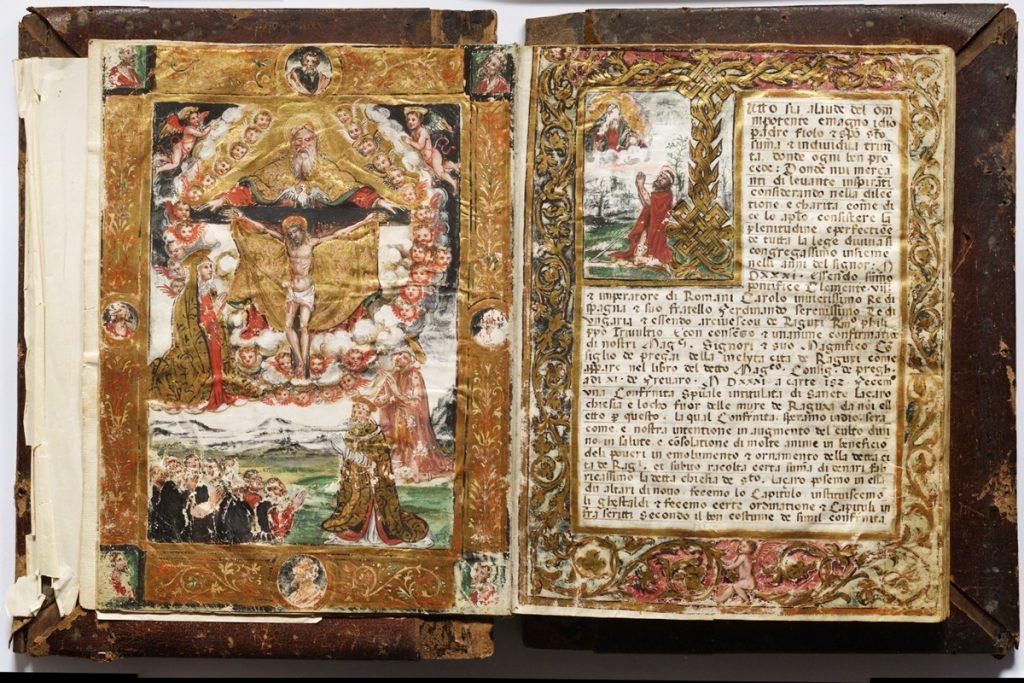 utto sia alaude del om
nipotente e magno idio
padre fiolo & spo sto
suma & individua trini
ta. donde ogni ben pro
cede: Donde nui mercan
ti di levante inspirati
considerando nella dilec
tione e charita come di
ce lo apto consistere la
plenitudine e perfectione
de tutta la lege divina si
congregassimo insieme
nelli anni del signor: M
DXXXI. Essendo sumo
pontifice Clemente. VII
& imperatore di Romani Carolo invictissimo Re di
spagna & suo fratello Ferdinando serenissimo Re di
ungaria. & essendo arcivescou de Raguxi
ppo Trivultio. & con consenso & unanime confirmatio
di nostri Signori & suo Magnifico con
siglio de pregai della inclyta cita de Raguxi come
appare nel libro del detto Consig. de pregha
di XI. de Frevaro. M DXXXI a carte 152. Fecemo
una Confrnita Spuale intitulata di Sancto Lacaro
chiesia & locho fuor delle mure de Raguxa da nui ell
etto p questo: la qual Confrnita speramo indio sera
come e nostra intentione in augmento del culto divi
no. in salute. e cosolatione di molte anime in beneficio
deli poveri in emolumento & ornamento della detta ci
ta de et subito racolta certa suma di denari fab
ricassimo la detta chiesia de sto. Lacaro posemo in essa
dui altari di novo fecemo lo Capitulo instituissemo
li Ghestaldi & fecemo certe ordinatione & Capituli in
fra scritti Secondo il bon costume de simil confrnita